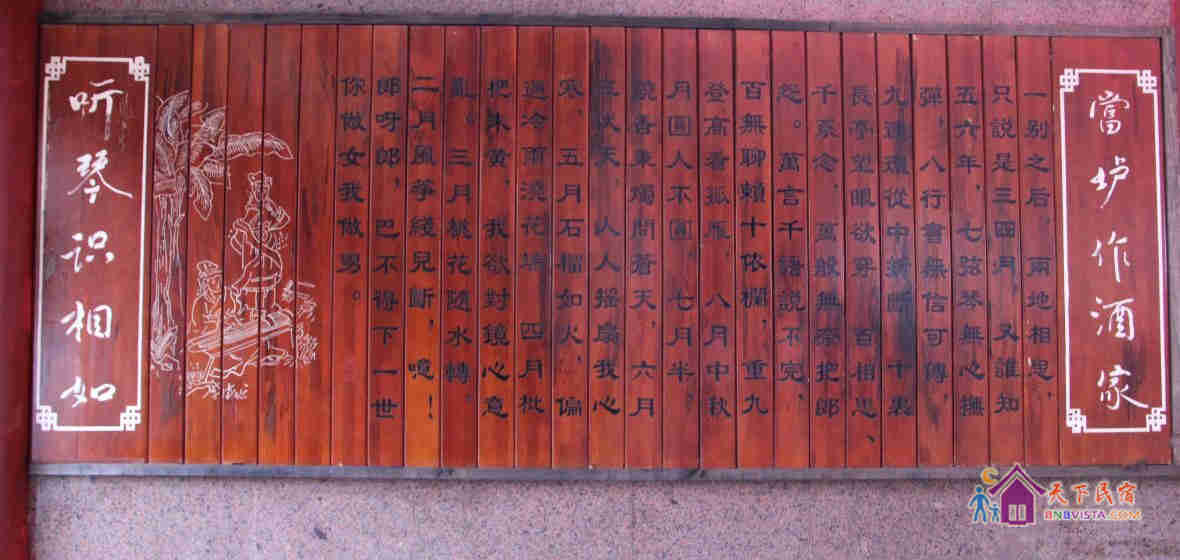 當垆作酒家
一别之后，兩地相思，
只説是三四月，又誰知
五六年，七弦琴無心撫
彈，八行書無信可傳，
九連環從中折斷，十裏
長亭望眼欲穿，百相思、
千系念，萬般無奈把郎
怨。萬言千語説不完，
百無聊賴十依欄，重九
登高看孤雁，八月中秋
月圓人不圓。七月半，
燒香秉燭問蒼天，六月
三伏天，人人摇扇我心
寒，五月石榴如火，偏
遇冷雨澆花端，四月枇
杷未黄，我欲對鏡心意
亂。三月桃花隨水轉，
二月風筝綫兒斷，噫！
郎呀郎，巴不得下一世
你做女我做男。
听琴识相如
天下民宿
BNBVISTA.COM